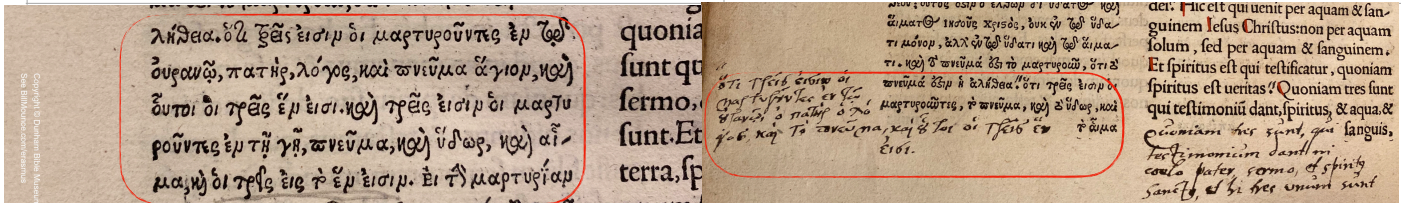 λήθεια. ὅτι τρεῖς εἰσιν οἱ μαρτυροῦντες ἐν τῷ
οὐρανῷ, πατήρ, λόγος, καὶ πνεῦμα ἅγιον, καὶ
οὗτοι οἱ τρεῖς ἕν εἰσι. καὶ τρεῖς εἰσιν οἱ μαρτυ
ροῦντες ἐν τῇ γῇ, πνεῦμα, καὶ ὕδωρ, καὶ αἷ-
μα, καὶ οἱ τρεῖς εἰς τὸ ἕν εἰσιν. Εἰ τὴν μαρτυρίαν
quonia
sunt qu
sermo,
sunt. Et
terra, sp
Copyright © Dunham Bible Museum
See BillMounce.com/erasmus
αἵματος ἰησοῦς χριστός, οὐκ ἐν τῷ ὕδα-
τι μόνον, ἀλλ' ἐν τῷ ὕδατι καὶ τῷ αἵμα-
τι. καὶ τὸ πνεῦμά ἐστιν τὸ μαρτυροῦν, ὅτι τὸ
πνεῦμά ἐστιν ἡ ἀλήθεια. ὅτι τρεῖς εἰσιν οἱ
μαρτυροῦντες, τὸ πνεῦμα, καὶ τὸ ὕδωρ, καὶ
τὸ αἷμα
ὅτι τρεῖς εἰσιν οἱ
μαρτυροῦντες ἐν τῷ
οὐρανῷ ὁ πατὴρ ὁ λό
γος, καὶ τὸ πνεῦμα, καὶ οὗτοι οἱ τρεῖς ἕν
εἰσι.
dei. Hic est qui uenit per aquam & san-
guinem Iesus Christus: non per aquam
solum, sed per aquam & sanguinem.
Et spiritus est qui testificatur, quoniam
spiritus est ueritas. Quoniam tres sunt
qui testimoniũ dant, spiritus, & aqua, &
sanguis,
Quoniam tres sunt, qui
testimonium dant in
coelo pater, sermo, et spiritus
sanctus, et hi tres unum sunt